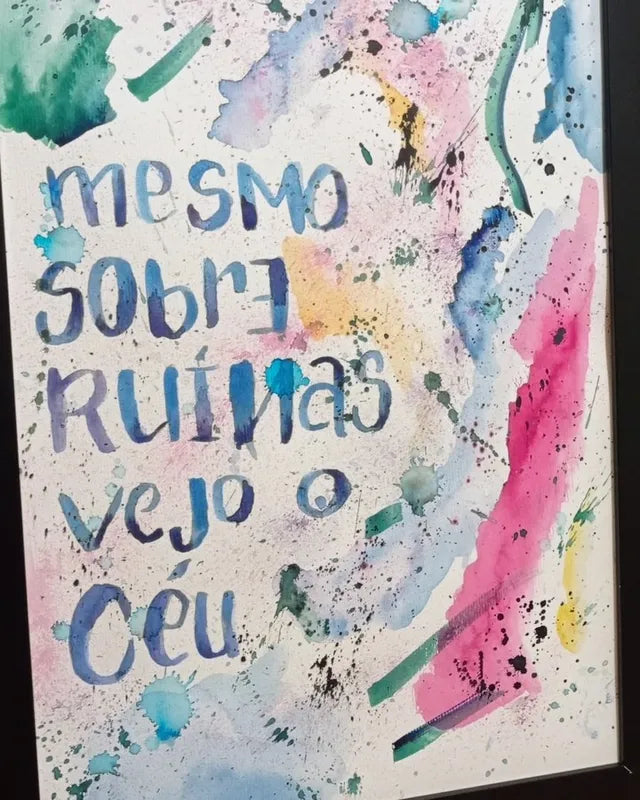 mesmo
sobre
RUÍNas
vejo o
Céu